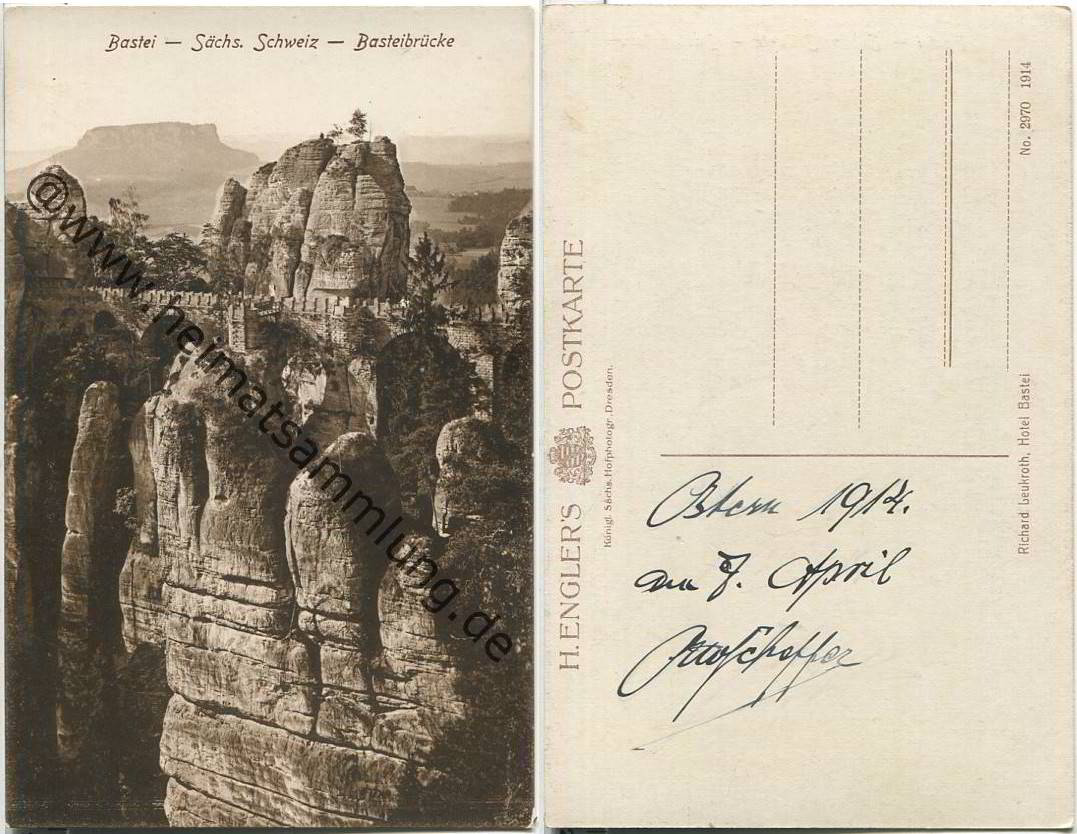 Bastei — Sächs. Schweiz — Basteibrücke
@www.heimatsammlung.de
H. ENGLER'S POSTKARTE
Königl. Sächs. Hofphotogr. Dresden.
No. 2970 1914
Richard Leukroth, Hotel Bastei
Ostern 1914.
am 7. April
Scheffer